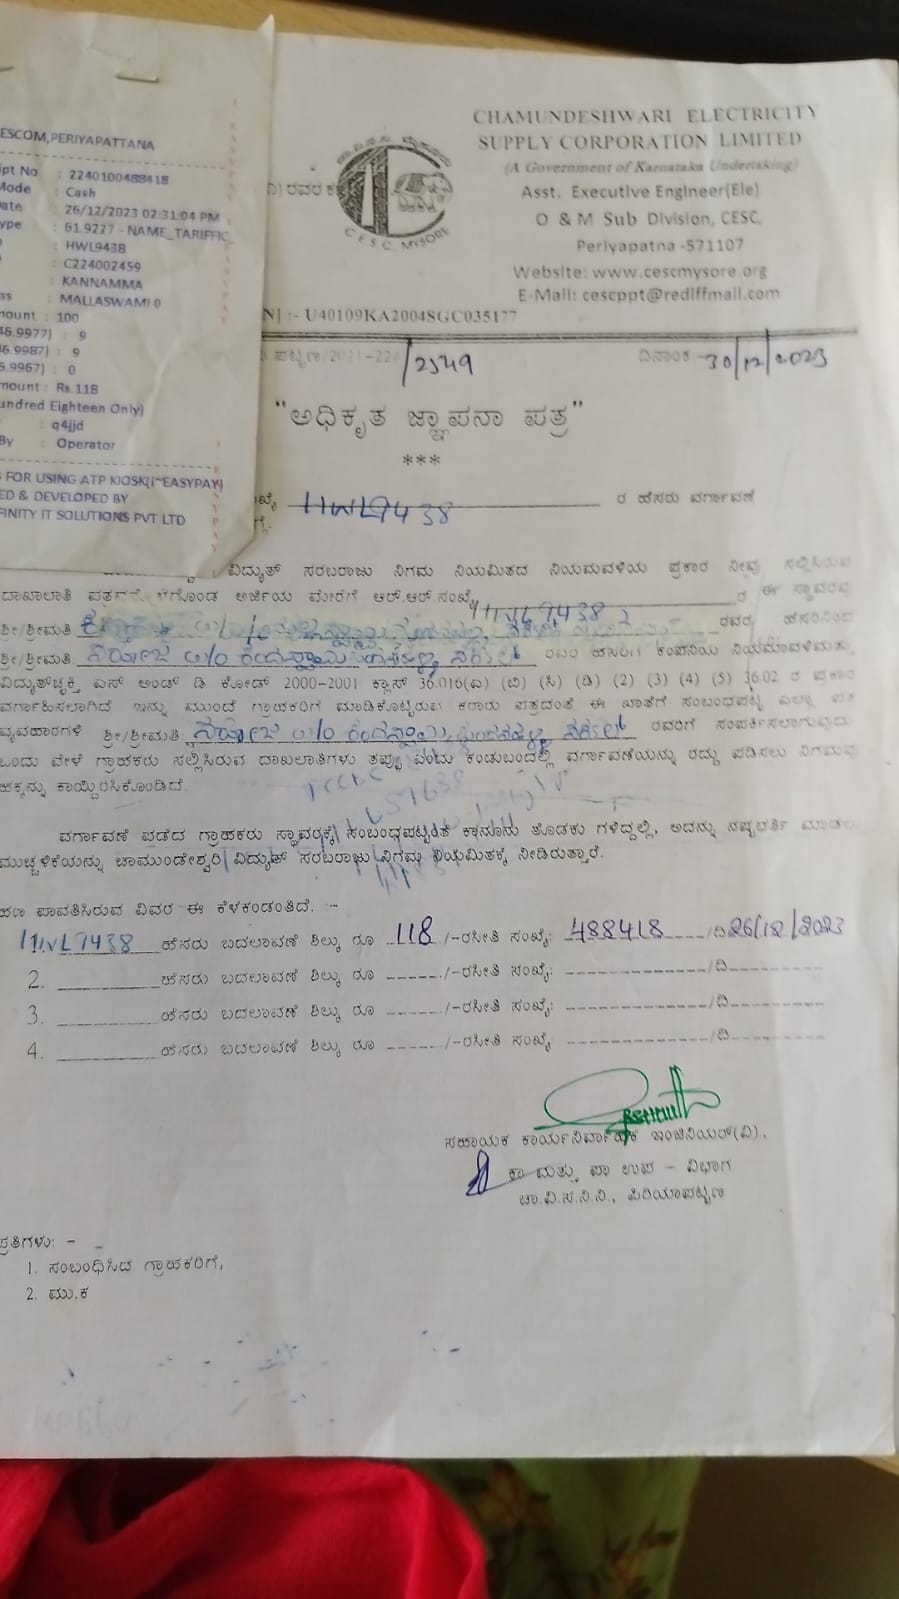 ESCOM,PERIYAPATTANA
ipt No : 2240100488418
Mode : Cash
ate : 26/12/2023 02:31:04 PM
ype : 61.9227 - NAME_TARIFFIC_
: HWL9438
: C224002459
: KANNAMMA
ss : MALLASWAMI 0
mount : 100
46.9977) : 9
6.9987) : 9
6.9967) : 0
mount : Rs.118
undred Eighteen Only)
: q4jjd
By : Operator
FOR USING ATP KIOSK(i~EASYPAY)
ED & DEVELOPED BY
FINITY IT SOLUTIONS PVT LTD
CHAMUNDESHWARI ELECTRICITY
SUPPLY CORPORATION LIMITED
(A Government of Karnataka Undertaking)
Asst. Executive Engineer(Ele)
O & M Sub Division, CESC,
Periyapatna -571107
Website: www.cescmysore.org
E-Mail: cescppt@rediffmail.com
C.E.S.C. MYSORE
N] :- U40109KA2004SGC035177
/2021-22/ /2549 ದಿನಾಂಕ 30/12/2023
"ಅಧಿಕೃತ ಜ್ಞಾಪನಾ ಪತ್ರ"
***
HWL9438 ರ ಹೆಸರು ವರ್ಗಾವಣೆ
ವಿದ್ಯುತ್ ಸರಬರಾಜು ನಿಗಮ ನಿಯಮಿತದ ನಿಯಮವಳಿಯ ಪ್ರಕಾರ ನೀವು ಸಲ್ಲಿಸಿರುವ
ದಾಖಾಲಾತಿ ಅರ್ಜಿಯ ಮೇರೆಗೆ ಆರ್.ಆರ್.ಸಂಖ್ಯೆ HWL9438 ರ ಈ ಸ್ಥಾವರವು
ಶ್ರೀ/ಶ್ರೀಮತಿ ರವರ ಹೆಸರಿನಿಂದ
ಶ್ರೀ/ಶ್ರೀಮತಿ ರವರ ಹೆಸರಿಗೆ ಕಂಪನಿಯ ನಿಯಮಾವಳಿಮತ್ತು
ವಿದ್ಯುತ್‌ಚ್ಛಕ್ತಿ ಎಸ್ ಅಂಡ್ ಡಿ ಕೋಡ್ 2000-2001 ಕ್ಲಾಸ್ 36.016(ಎ) (ಬಿ) (ಸಿ) (ಡಿ) (2) (3) (4) (5) 36.02 ರ ಪ್ರಕಾರ
ವರ್ಗಾಹಿಸಲಾಗಿದೆ ಇನ್ನು ಮುಂದೆ ಗ್ರಾಹಕರಿಗೆ ಮಾಡಿಕೊಟ್ಟಿರುವ ಕರಾರು ಪತ್ರದಂತೆ ಈ ಖಾತೆಗೆ ಸಂಬಂಧಪಟ್ಟ ಎಲ್ಲಾ
ವ್ಯವಹಾರಗಳಿ ಶ್ರೀ/ಶ್ರೀಮತಿ ರವರಿಗೆ ಸಂಪರ್ಕಿಸಲಾಗುವುದು
ಒಂದು ವೇಳೆ ಗ್ರಾಹಕರು ಸಲ್ಲಿಸಿರುವ ದಾಖಲಾತಿಗಳು ತಪ್ಪು ಎಂದು ಕಂಡುಬಂದಲ್ಲಿ ವರ್ಗಾವಣೆಯನ್ನು ರದ್ದು ಪಡಿಸಲು ನಿಗಮವು
ಹಕ್ಕನ್ನು ಕಾಯ್ದಿರಿಸಿಕೊಂಡಿದೆ.
ವರ್ಗಾವಣೆ ಪಡೆದ ಗ್ರಾಹಕರು ಸ್ಥಾವರಕ್ಕೆ ಸಂಬಂಧಪಟ್ಟಂತೆ ಕಾನೂನು ತೊಡಕು ಗಳಿದ್ದಲ್ಲಿ, ಅದನ್ನು ನಷ್ಟಭರ್ತಿ
ಮುಚ್ಚಳಿಕೆಯನ್ನು ಚಾಮುಂಡೇಶ್ವರಿ ವಿದ್ಯುತ್ ಸರಬರಾಜು ನಿಗಮ ನಿಯಮಿತಕ್ಕೆ ನೀಡಿರುತ್ತಾರೆ.
ಹಣ ಪಾವತಿಸಿರುವ ವಿವರ ಈ ಕೆಳಕಂಡಂತಿದೆ. :-
1HWL9438 ಹೆಸರು ಬದಲಾವಣೆ ಶುಲ್ಕ ರೂ 118 /-ರಸೀತಿ ಸಂಖ್ಯೆ: 488418 /ದಿ 26/12/2023
2. ಹೆಸರು ಬದಲಾವಣೆ ಶುಲ್ಕ ರೂ ------/-ರಸೀತಿ ಸಂಖ್ಯೆ: --------------/ದಿ----------
3. ಹೆಸರು ಬದಲಾವಣೆ ಶುಲ್ಕ ರೂ ------/-ರಸೀತಿ ಸಂಖ್ಯೆ: --------------/ದಿ----------
4. ಹೆಸರು ಬದಲಾವಣೆ ಶುಲ್ಕ ರೂ ------/-ರಸೀತಿ ಸಂಖ್ಯೆ --------------/ದಿ----------
ಸಹಾಯಕ ಕಾರ್ಯನಿರ್ವಾಹಕ ಇಂಜಿನಿಯರ್(ವಿ),
ಕಾ ಮತ್ತು ಪಾ ಉಪ - ವಿಭಾಗ
ಚಾ.ವಿ.ಸ.ನಿ.ನಿ., ಪಿರಿಯಾಪಟ್ಟಣ
ಪ್ರತಿಗಳು: -
1. ಸಂಬಂಧಿಸಿದ ಗ್ರಾಹಕರಿಗೆ,
2. ಮು.ಕ